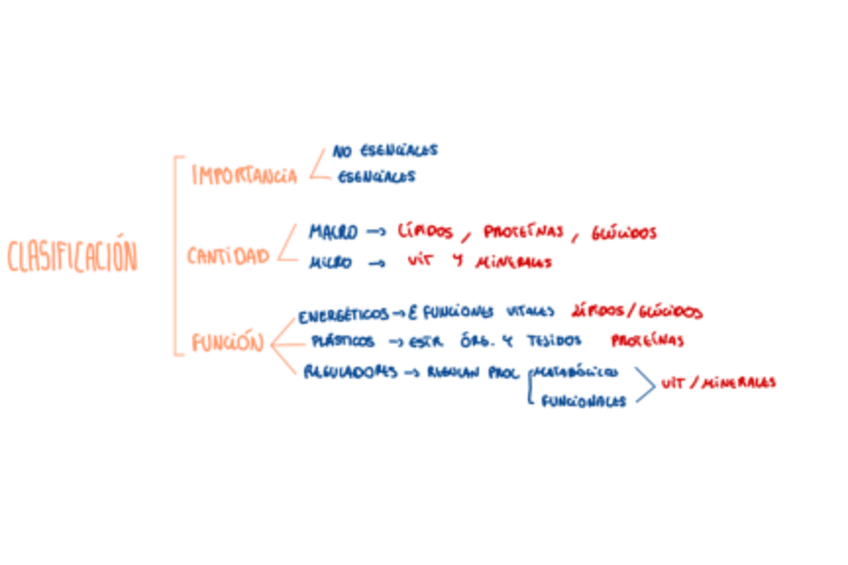 CLASIFICACIÓN
IMPORTANCIA
NO ESENCIALES
ESENCIALES
CANTIDAD
MACRO → LÍPIDOS, PROTEÍNAS, GLÚCIDOS
MICRO → VIT Y MINERALES
FUNCIÓN
ENERGÉTICOS → E FUNCIONES VITALES LÍPIDOS/GLÚCIDOS
PLÁSTICOS → ESTR ÓRG. Y TEJIDOS PROTEÍNAS
REGULADORES → REGULAN PROC METABÓLICOS
FUNCIONALES
VIT/MINERALES